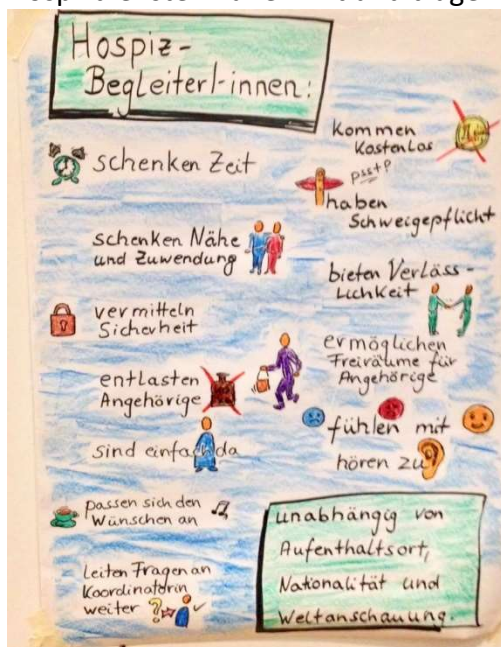 Hospiz-
Begleiter/-innen:
schenken Zeit
schenken Nähe
und Zuwendung
vermitteln
Sicherheit
entlasten
Angehörige
sind einfach da
passen sich den
Wünschen an
Leiten Fragen an
Koordinatorin
weiter ?
kommen
Kostenlos
psst?
haben
Schweigepflicht
bieten Verläss-
lichkeit
ermöglichen
Freiräume für
Angehörige
fühlen mit
hören zu
unabhängig von
Aufenthaltsort,
Nationalität und
Weltanschauung.